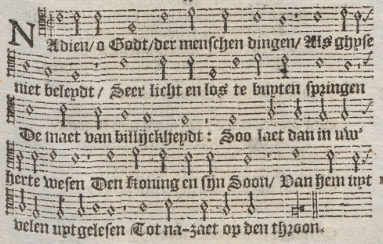 NAdien/ o Godt/ der menschen dingen/ Als ghyse
niet beleydt/ Seer licht en los te buyten springen
De maet van billijckheydt: Soo laet dan in uw'
herte wesen Den Koning en sijn Soon/ Van hem uyt
velen uytgelesen Tot na-zaet op den throon.